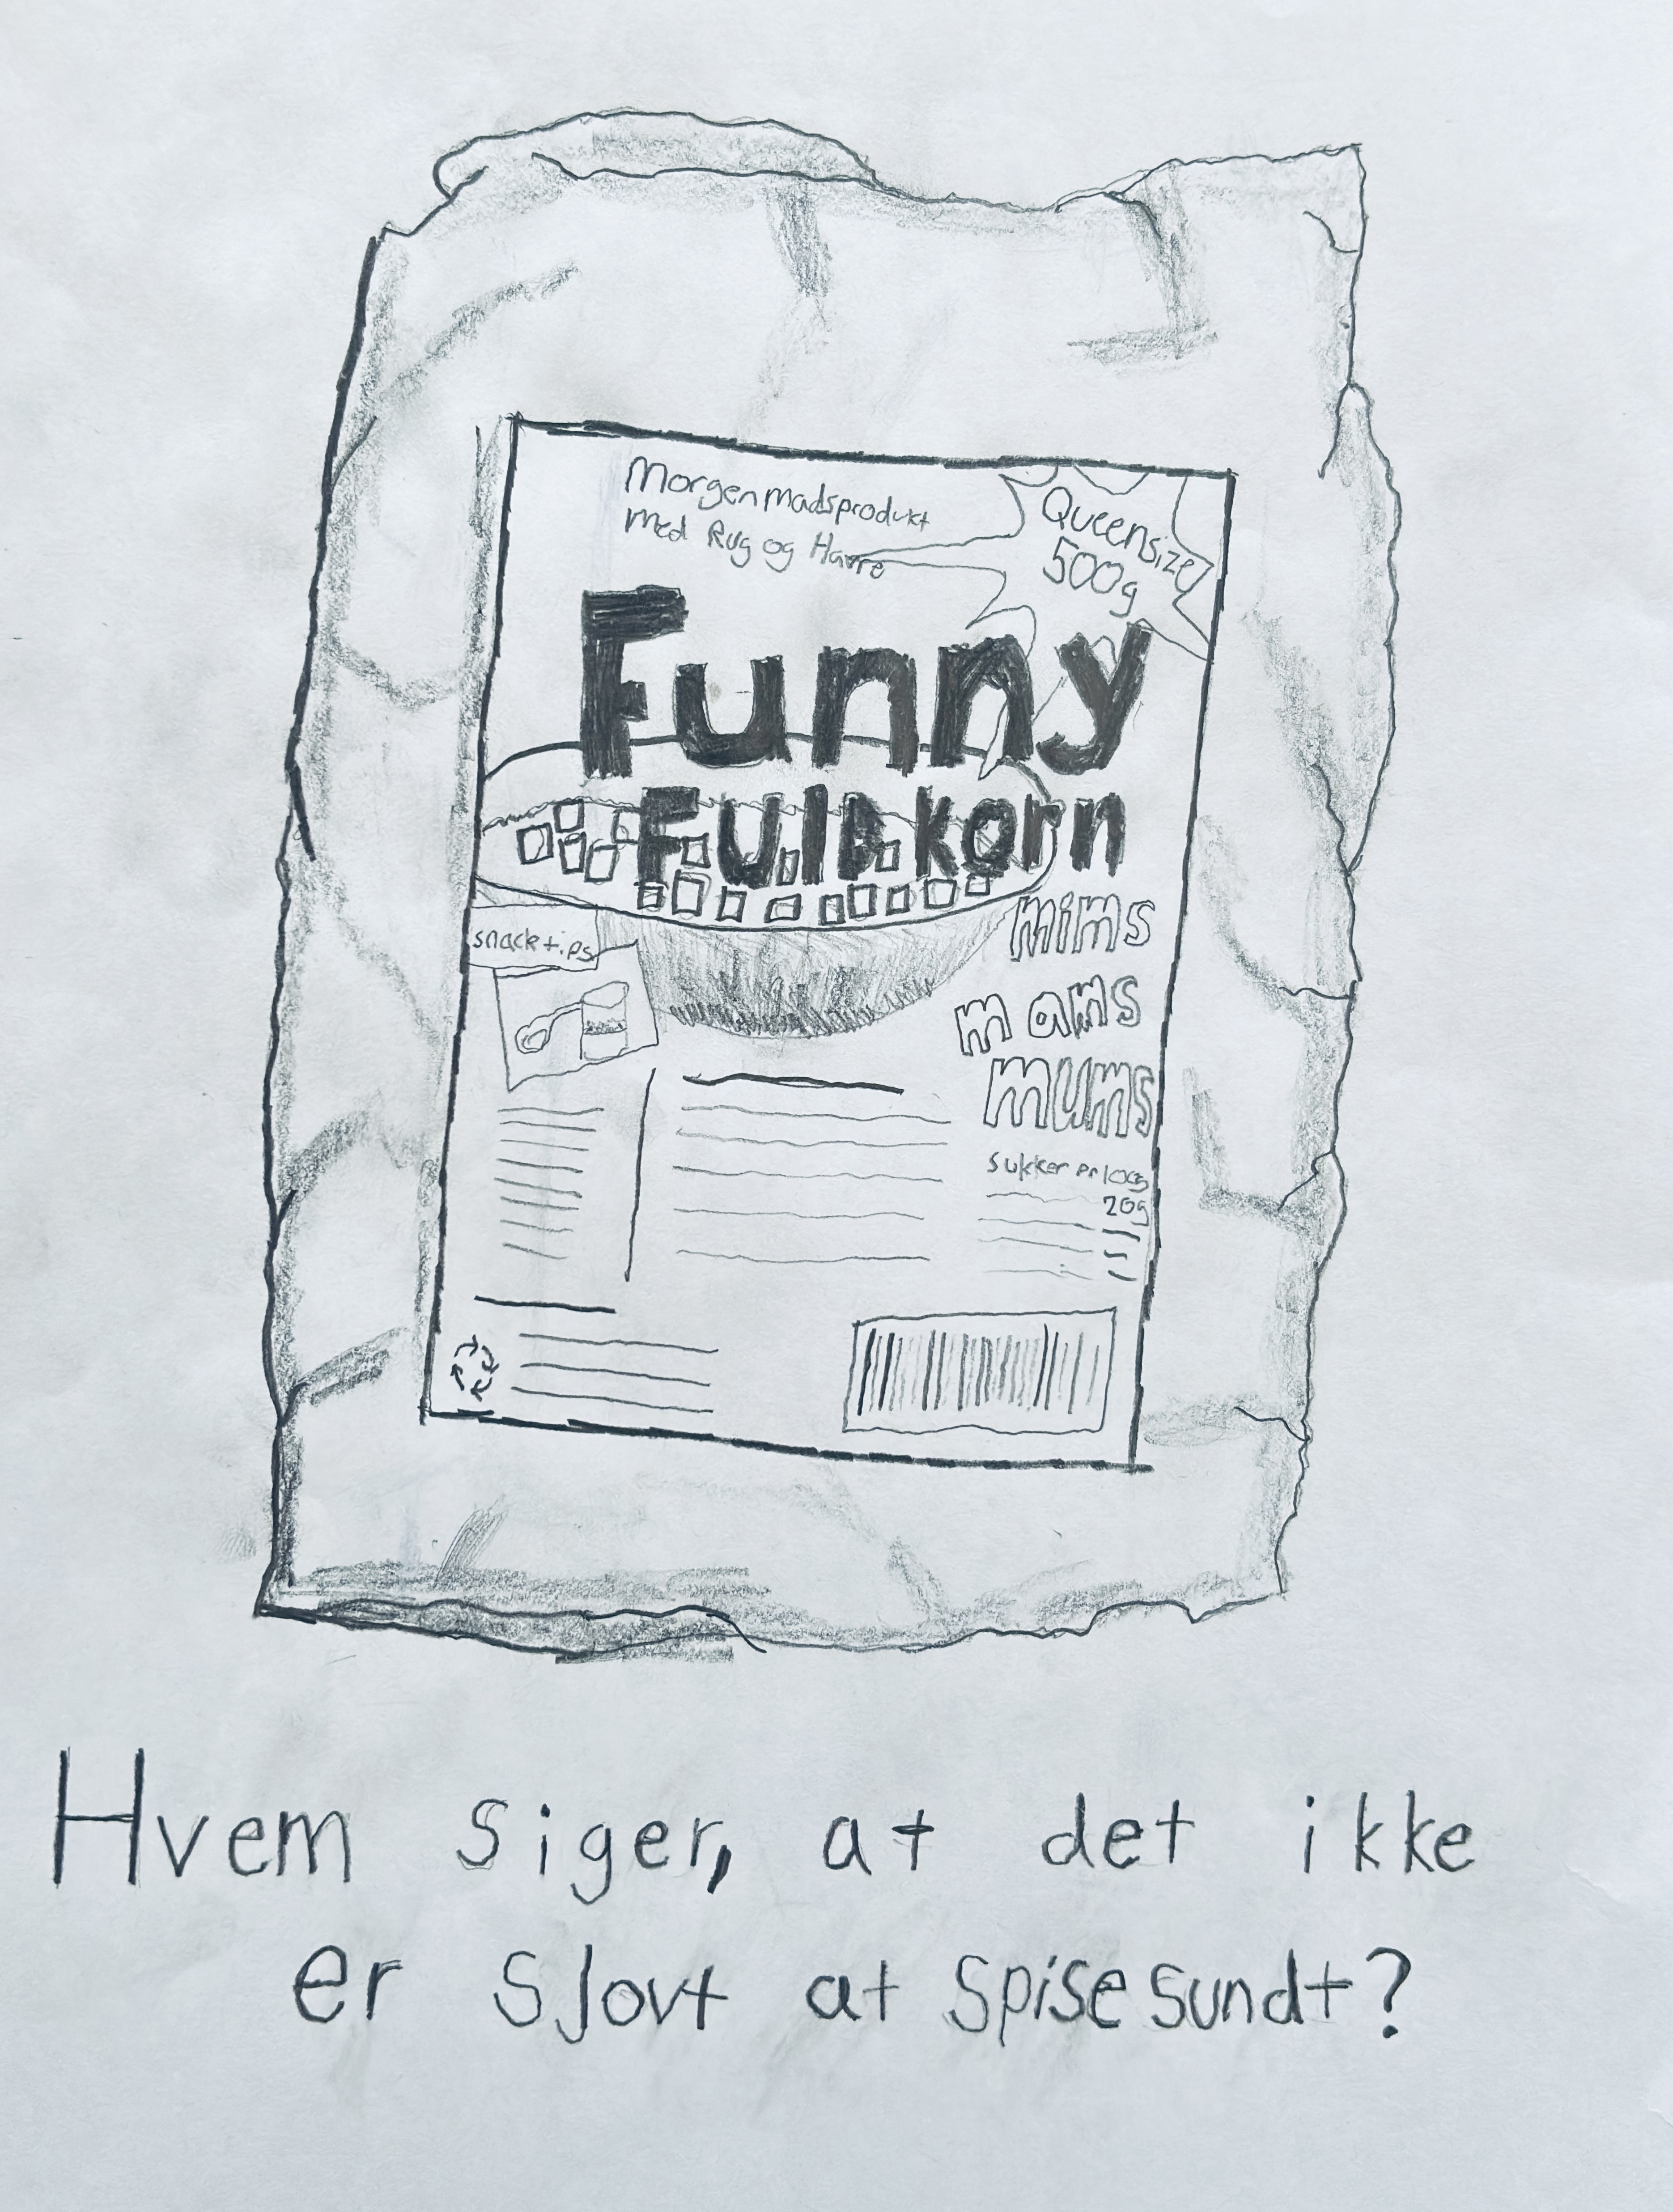 Morgenmadsprodukt
med Rug og Havre
Queensize
500g
Funny
Fuldkorn
mims
mams
mums
snacktips
sukker pr 100g
20g
Hvem siger, at det ikke
er sjovt at spise sundt?